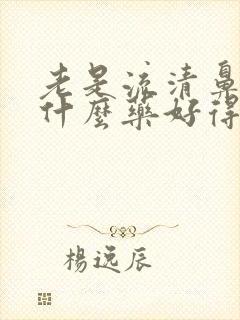 老是流清鼻
什麼藥好得
楊逸辰